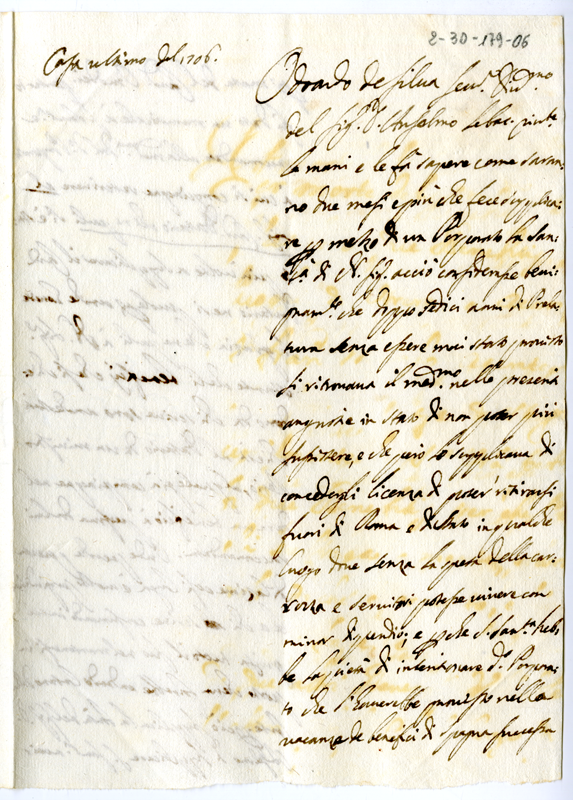 2-30-179-06
Casa ultimo del 1706.
Odoardo de Silva Ser.re
del Sig.r D. Anselmo
le mani e le fà sapere come saran-
no due mesi e più che fece supplica-
re p mezzo di un Porporato la San-
tità di N. Sig. acciò considerasse beni-
gnam.te che doppo sedici anni di Prela-
tura senza essere mai stato provisto
si ritrovava il med.mo nelle presenti
angustie in stato di non poter più
sussistere, e che però lo supplicava di
concedergli licenza di poter ritirarsi
fuori di Roma e in qualche
luogo dove senza la spesa della car-
rozza e servitori potesse vivere con
minor dispendio; e p che S. San.tà heb-
be la pietà di intentionare d.o Porpora-
to che l'haverebbe provisto nelle
vacanze de benefici di Spagna